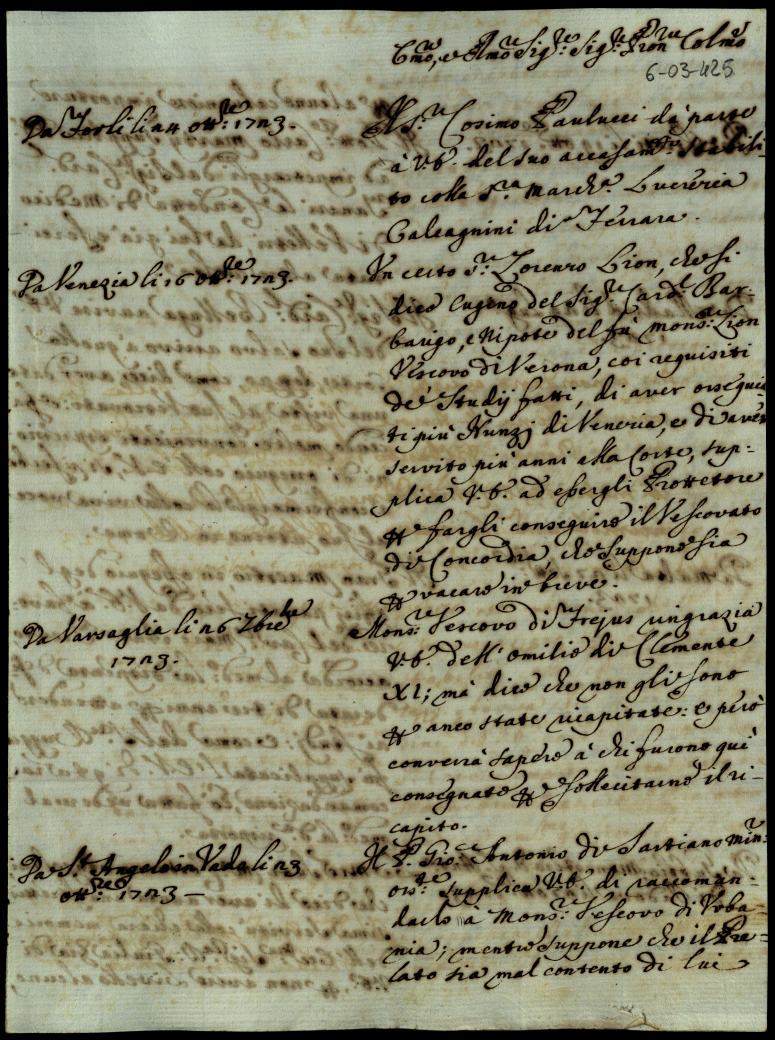 Emo, e Rmo Sigre Sigre Pron Colmo
6-03-425
Da Forlì li 24 ottre 1723.
Il Sr. Cosimo Paulucci dà parte
à V.E. del suo accasamto stabili-
to colla Sra March.a Lucrezia
Calcagnini di Ferrara.
Da Venezia li 16 ottre 1723.
Un certo Sr. Lorenzo Lion, che si
dice Cugino del Sigr Cardl Bar-
barigo, e Nipote del fù Monsr Lion
Vescovo di Verona, coi requisiti
de' Studij fatti, di aver osseguia-
ti più Nunzj di Venezia, e di aver
servito più anni alla Corte, sup-
plica V.E. ad essergli Protettore
per fargli conseguire il Vescovato
di Concordia, che suppone sia
per vacare in breve.
Da Varsaglia li 26 7bre
1723.
Monsr Vescovo di Frejus ringrazia
V.E. dell' omilie di Clemente
XI; mà dice che non gli sono
per anco state ricapitate: e però
converrà sapere à chi furono quì
consegnate per sollecitarne il ri-
capito.
Da St Angelo in Vado li 23
ottre 1723 —
Il P. Gio: Antonio di Sartiano Min:
ossre supplica V.E. di raccoman-
darlo à Monsr Vescovo di Urba-
nia; mentre suppone che il Pre-
lato sia mal contento di lui